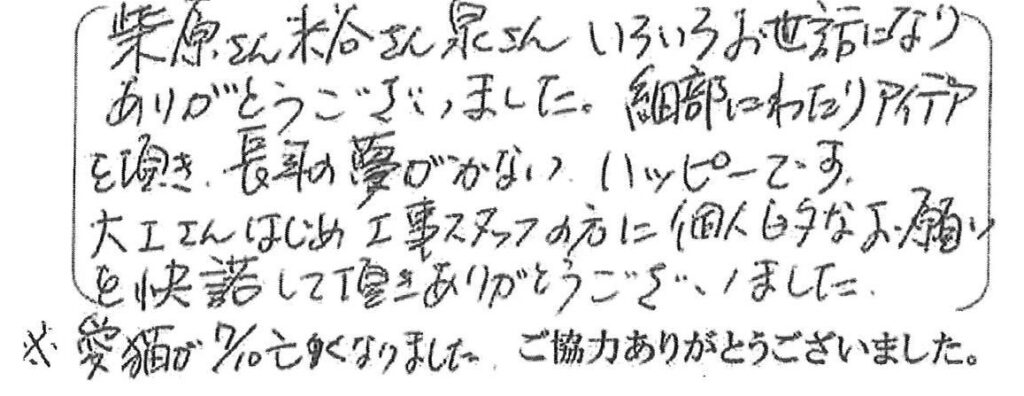 柴原さん米谷さん泉さん いろいろお世話になり
ありがとうございました。細部にわたりアイデア
を頂き、長年の夢がかない、ハッピーです。
大工さんはじめ工事スタッフの方に個人的なお願い
を快諾して頂きありがとうございました。
※愛猫が7/10亡くなりました ご協力ありがとうございました。